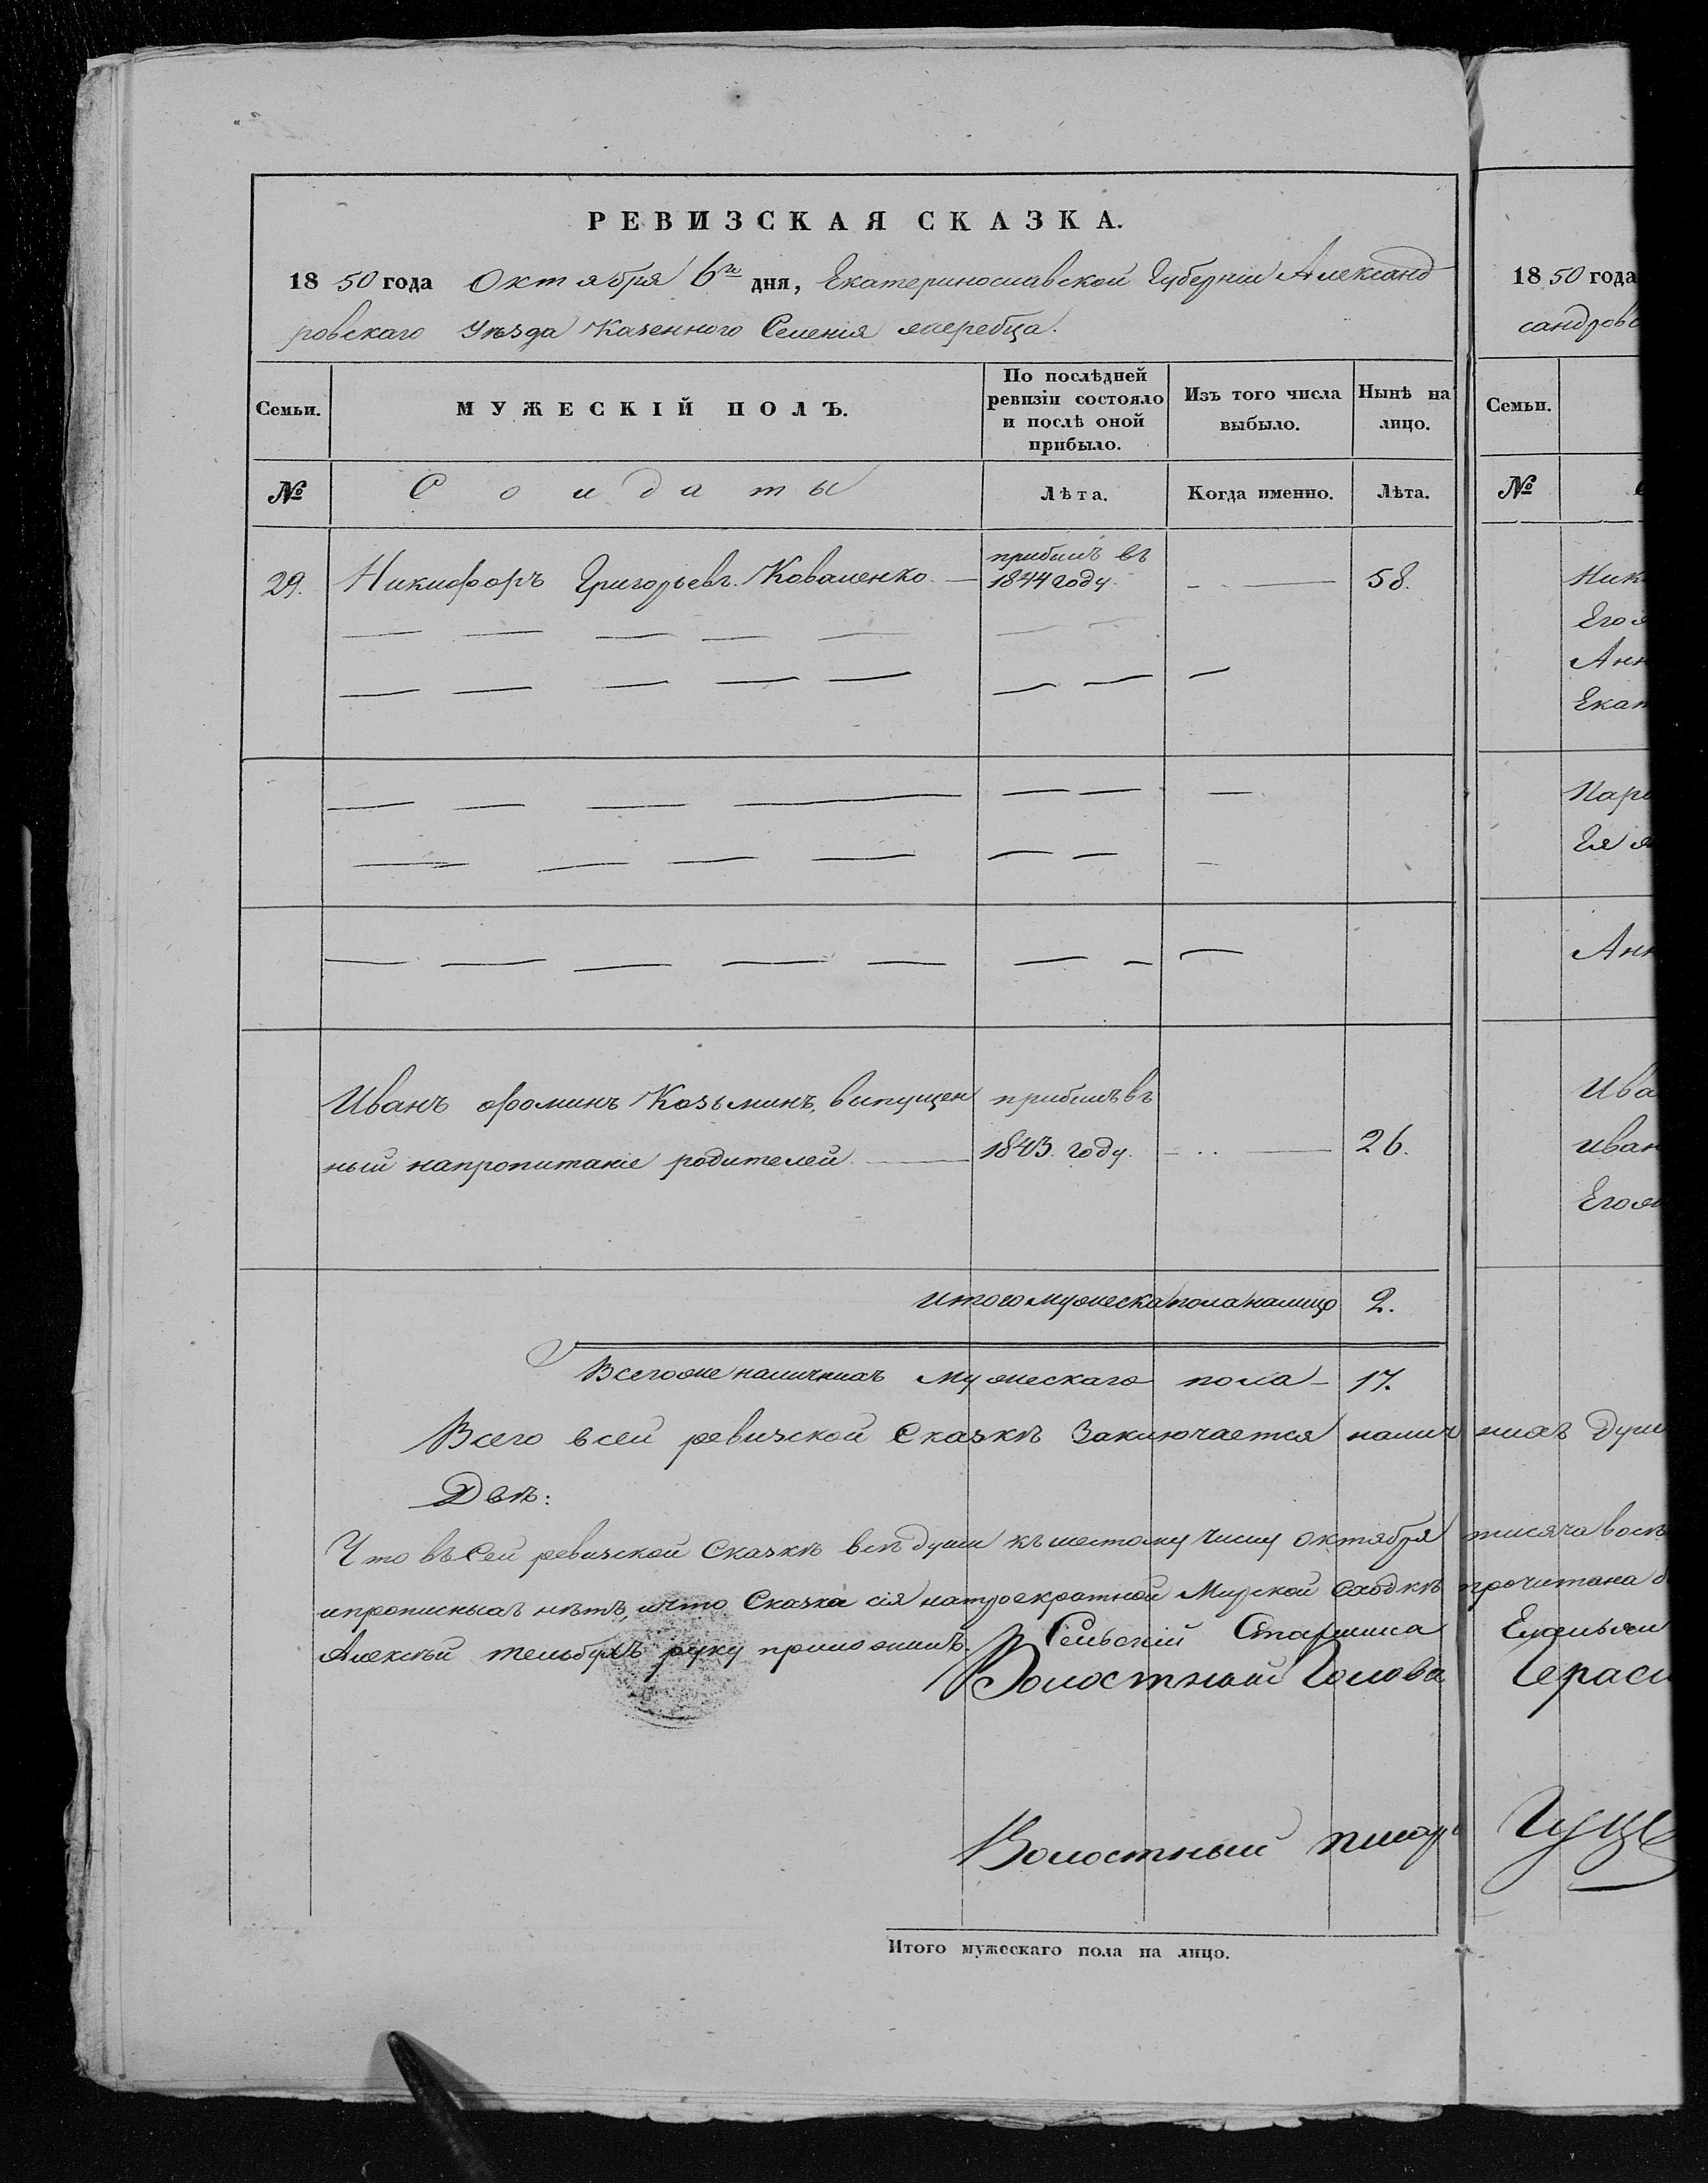 РЕВИЗСКАЯ СКАЗКА.
18 50 года Октября 6го дня, Екатеринославской Губерніи Александ
ровскаго Уѣзда Казенного Селенія жеребца.
Семьи.
МУЖЕСКІЙ ПОЛЪ.
По послѣдней
ревизіи состояло
и послѣ оной
прибыло.
Изъ того числа
выбыло.
Нынѣ на
лицо.
№ Солдаты Лѣта. Когда именно. Лѣта.
прибылъ въ
29. Никифоръ Григорьевъ Коваленко 1844 году. 58.
Иванъ Фоминъ Козьминъ, выпущен прибылъ въ
ный напропитаніе родителей 1843. году. 26.
Итого мужеска пола налицо 2.
Всегоже наличныхъ мужескаго пола 17.
Всего всей ревизской Сказкѣ Заключается налич ныхъ душ
Двѣ:
Что въ Сей ревизской Сказкѣ всѣ души къ шестому числу Октября тисяча восѣ
ипрописныхъ нѣтъ, ичто Сказка сія натроекратной Мирской Сходкѣ прочитана
Алексѣй руку приложилъ. Сельскій Старшина Емельян
Волостный Голова Гераси
Волостный писарь
Итого мужескаго пола на лицо.
18 50 года
сандровс
Семьи.
№
Ник
Его
Анн
Екат
Пар
Ея
Анн
Ива
иван
Его